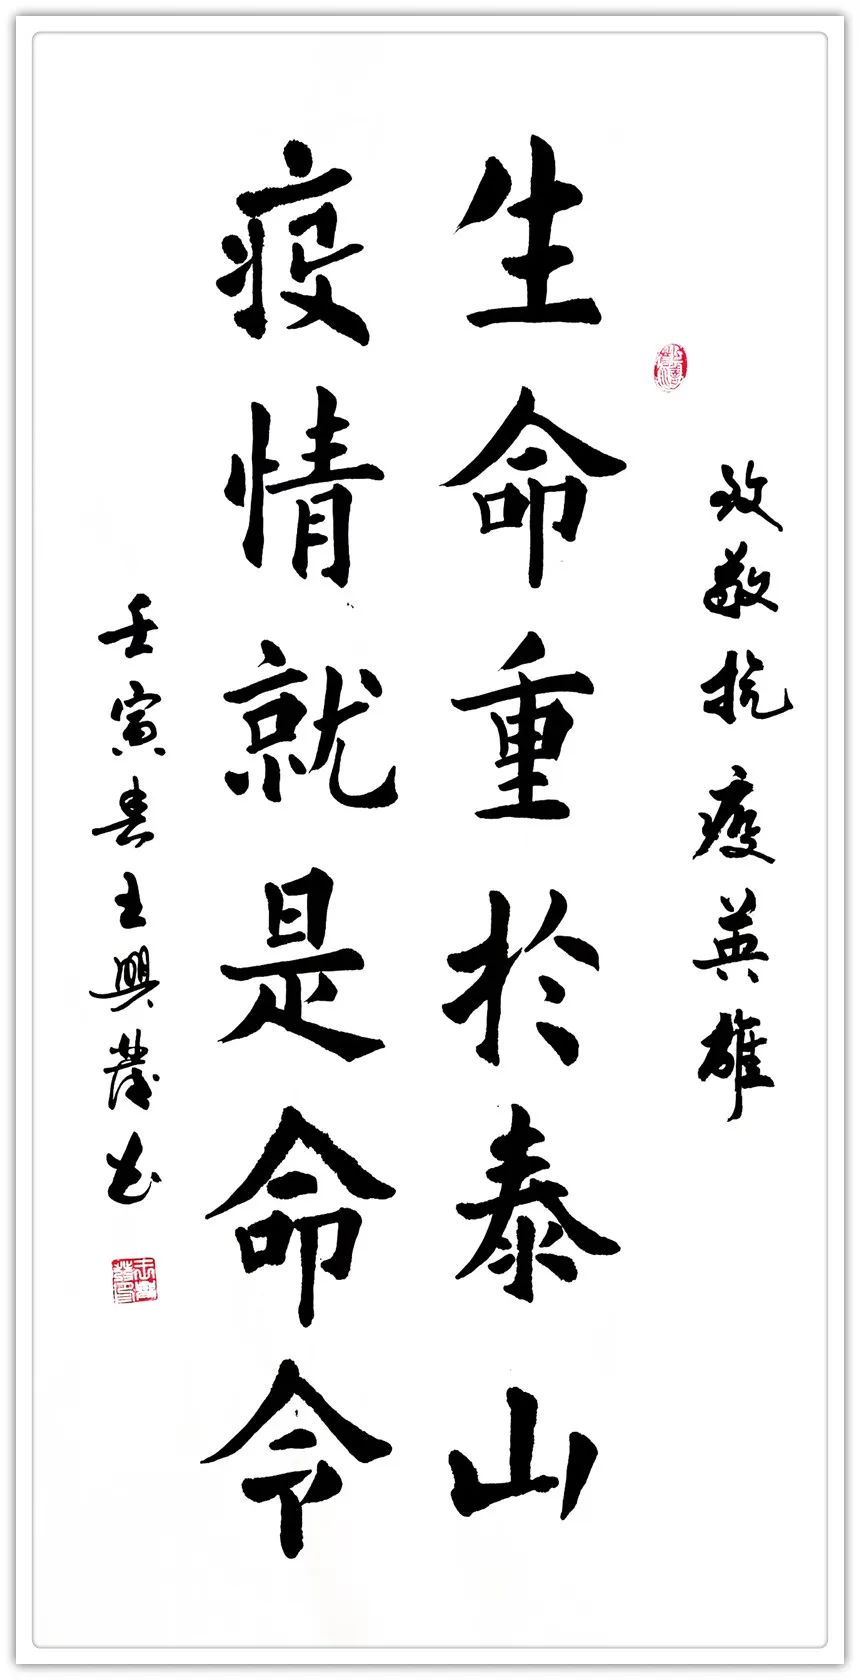 致敬抗疫英雄
生命重於泰山
疫情就是命令
壬寅春王興發书